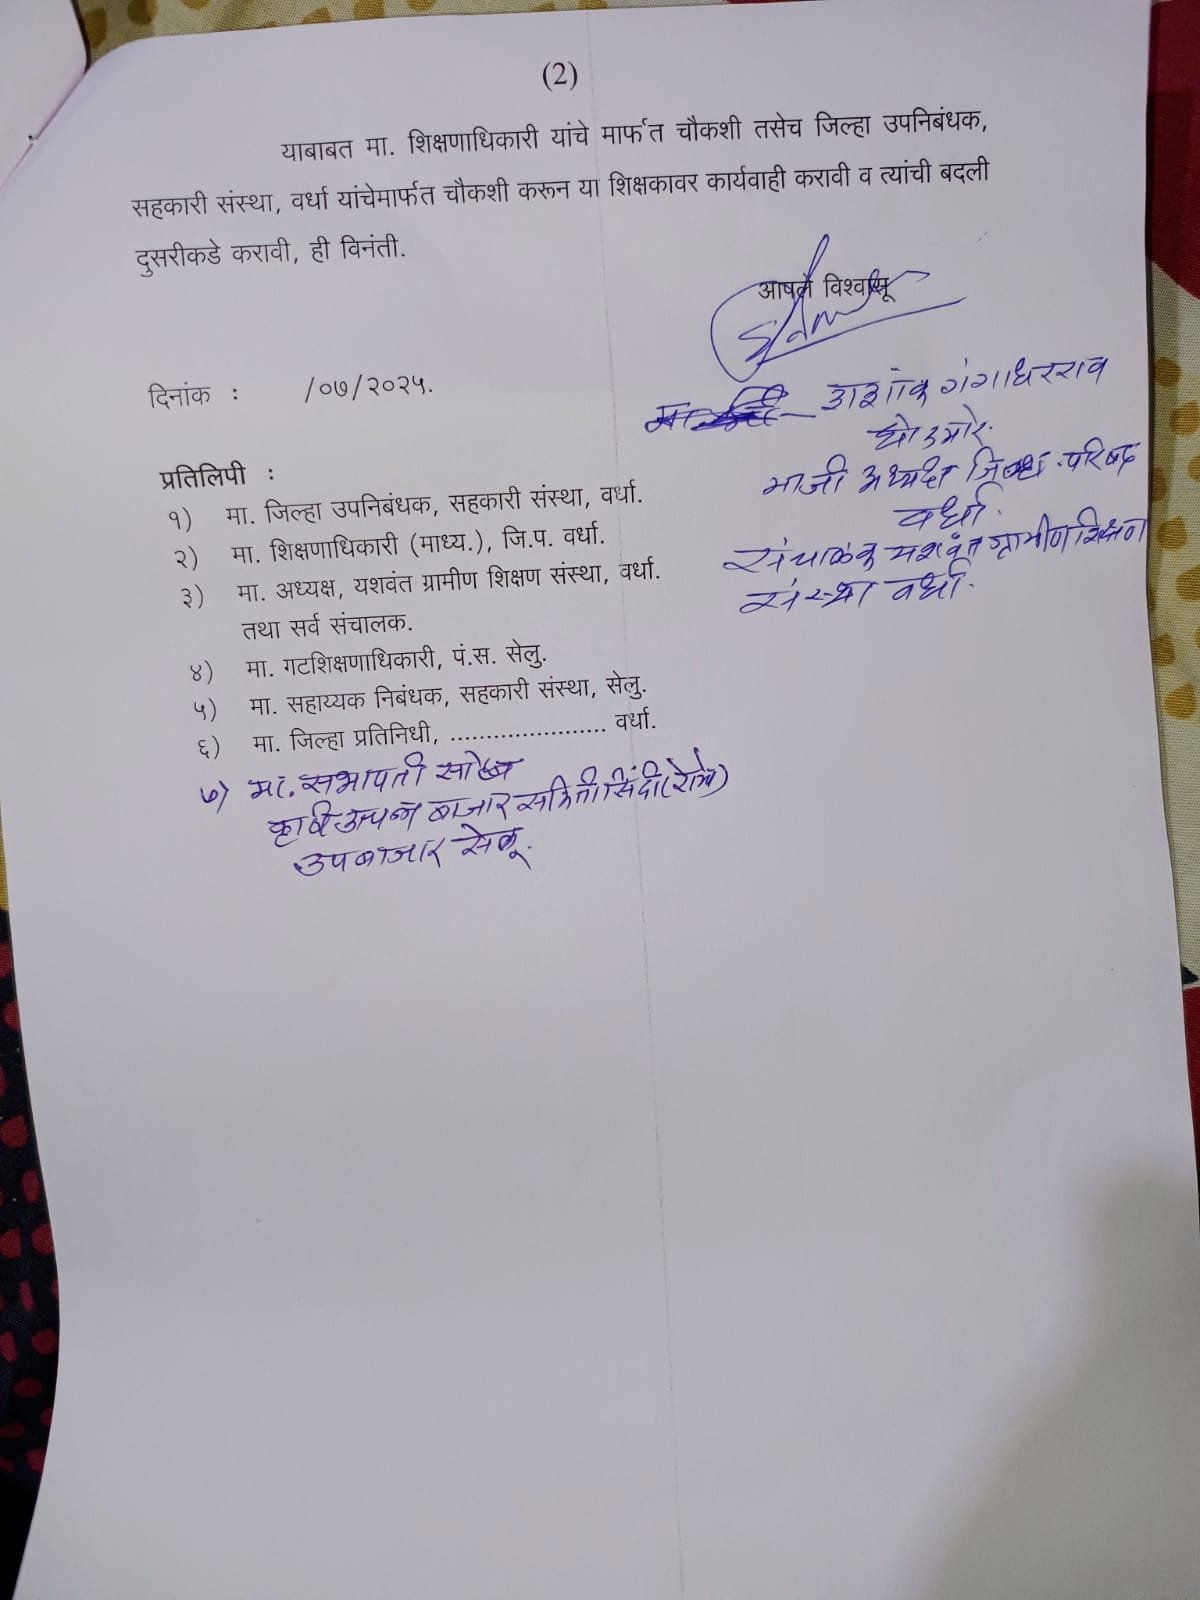 (2)
याबाबत मा. शिक्षणाधिकारी यांचे मार्फत चौकशी तसेच जिल्हा उपनिबंधक,
सहकारी संस्था, वर्धा यांचेमार्फत चौकशी करून या शिक्षकावर कार्यवाही करावी व त्यांची बदली
दुसरीकडे करावी, ही विनंती.
आपले विश्वासू
दिनांक : /०७/२०२५.
गंगाधरराव
माजी अध्यक्ष जिल्हा परिषद
वर्धा.
संचालक यशवंत ग्रामीण शिक्षण
संस्था वर्धा.
प्रतिलिपी :
१) मा. जिल्हा उपनिबंधक, सहकारी संस्था, वर्धा.
२) मा. शिक्षणाधिकारी (माध्य.), जि.प. वर्धा.
३) मा. अध्यक्ष, यशवंत ग्रामीण शिक्षण संस्था, वर्धा.
तथा सर्व संचालक.
४) मा. गटशिक्षणाधिकारी, पं.स. सेलु.
५) मा. सहाय्यक निबंधक, सहकारी संस्था, सेलु.
६) मा. जिल्हा प्रतिनिधी, ...................... वर्धा.
७) मा. सभापती साहेब
कृषि उत्पन्न बाजार समिती सिंदी (रेल्वे)
उपबाजार सेलू.